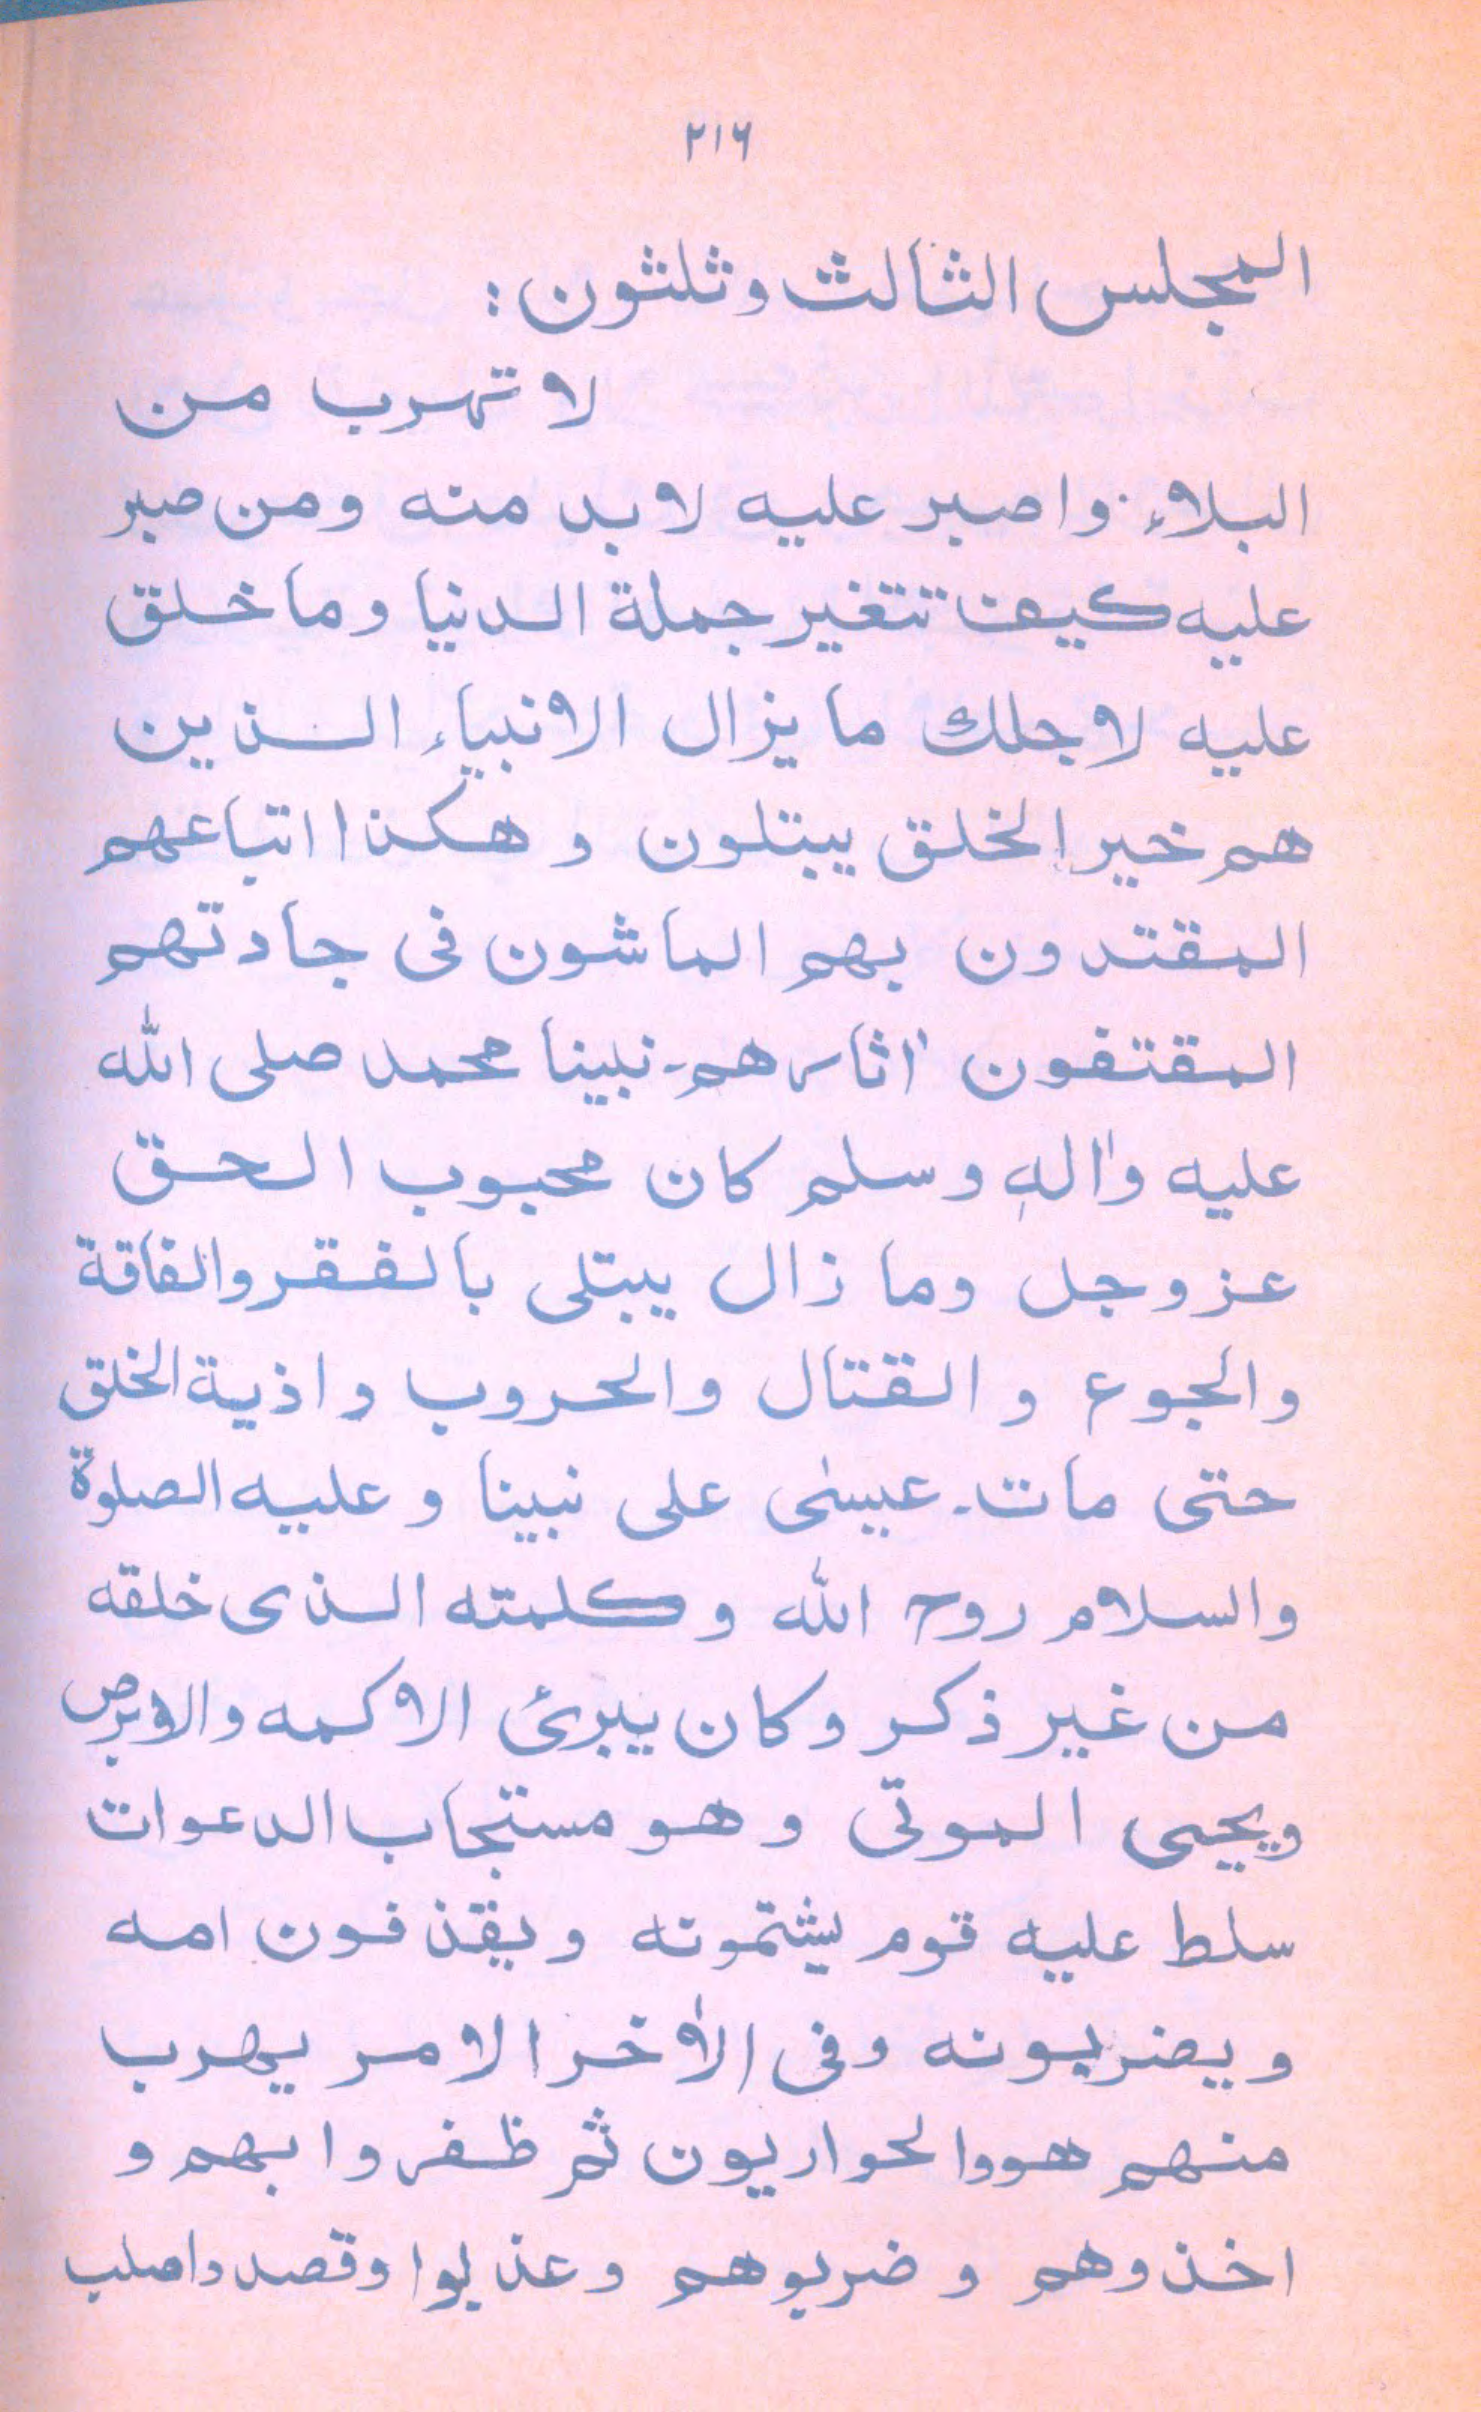 ۲۱۶
المجلس الثالث وثلثون:
لا تهرب من
البلاء واصبر عليه لابد منه ومن صبر
عليه كيف تتغير جملة الدنيا وما خلق
عليه لاجلك ما يزال الانبياء الذين
هم خير الخلق يبتلون وهكذا اتباعهم
المقتدون بهم الماشون فى جادتهم
المقتفون اثارهم۔ نبينا محمد صلى الله
عليه واٰلهٖ وسلم كان محبوب الحق
عزوجل وما زال يبتلى بالفقر والفاقة
والجوع والقتال والحروب واذية الخلق
حتى مات۔ عيسىٰ على نبينا وعليه الصلوة
والسلام روح الله وكلمته الذى خلقه
من غير ذكر وكان يبرئ الاكمه والابرص
ويحيى الموتى وهو مستجاب الدعوات
سلط عليه قوم يشتمونه ويقذفون امه
ويضربونه وفى الاٰخر الامر يهرب
منهم هو والحواريون ثم ظفروا بهم و
اخذوهم وضربوهم وعذبوا وقصدوا صلب